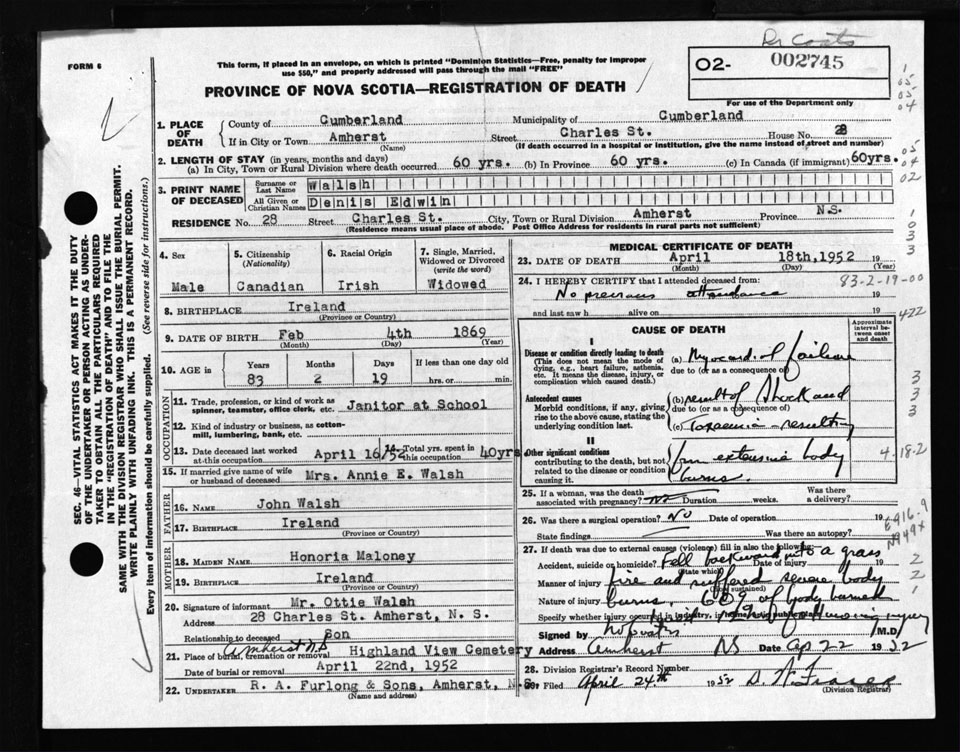 Dr Coats
FORM 6
This form, if placed in an envelope, on which is printed "Dominion Statistics—Free, penalty for improper
use $50," and properly addressed will pass through the mail "FREE"
02- 002745
For use of the Department only
PROVINCE OF NOVA SCOTIA—REGISTRATION OF DEATH
1. PLACE OF DEATH
County of Cumberland Municipality of Cumberland
If in City or Town Amherst Street Charles St. House No. 28
(Name) (If death occurred in a hospital or institution, give the name instead of street and number)
2. LENGTH OF STAY (in years, months and days)
(a) In City, Town or Rural Division where death occurred 60 yrs. (b) In Province 60 yrs. (c) In Canada (if immigrant) 60yrs.
3. PRINT NAME OF DECEASED
Surname or Last Name Walsh
All Given or Christian Names Denis Edwin
RESIDENCE No. 28 Street Charles St. City, Town or Rural Division Amherst Province N.S.
(Residence means usual place of abode. Post Office Address for residents in rural parts not sufficient)
4. Sex
Male
5. Citizenship
(Nationality)
Canadian
6. Racial Origin
Irish
7. Single, Married,
Widowed or Divorced
(write the word)
Widowed
8. BIRTHPLACE Ireland
(Province or Country)
9. DATE OF BIRTH Feb 4th 1869
(Month) (Day) (Year)
10. AGE in
Years Months Days If less than one day old
83 2 19 hrs. or min.
OCCUPATION
11. Trade, profession, or kind of work as
spinner, teamster, office clerk, etc. Janitor at School
12. Kind of industry or business, as cotton-
mill, lumbering, bank, etc.
13. Date deceased last worked
at this occupation April 16/52
14. Total yrs. spent in
this occupation 40yrs.
15. If married give name of wife
or husband of deceased Mrs. Annie E. Walsh
FATHER
16. NAME John Walsh
17. BIRTHPLACE Ireland
(Province or Country)
MOTHER
18. MAIDEN NAME Honoria Maloney
19. BIRTHPLACE Ireland
(Province or Country)
20. Signature of informant Mr. Ottie Walsh
Address 28 Charles St. Amherst, N. S.
Relationship to deceased Son
21. Place of burial, cremation or removal Amherst N.S Highland View Cemetery
Date of burial or removal April 22nd, 1952
22. UNDERTAKER R. A. Furlong & Sons, Amherst, N.S.
(Name and address)
MEDICAL CERTIFICATE OF DEATH
23. DATE OF DEATH April 18th,1952 19
(Month) (Day) (Year)
24. I HEREBY CERTIFY that I attended deceased from: 83-2-19-00
No previous attendance 19
and last saw h alive on 19
422
CAUSE OF DEATH
Approximate interval between onset and death
I
Disease or condition directly leading to death
(This does not mean the mode of
dying, e.g., heart failure, asthenia,
etc. It means the disease, injury, or
complication which caused death.)
(a) Myocardial failure
due to (or as a consequence of)
Antecedent causes
Morbid conditions, if any, giving
rise to the above cause, stating the
underlying condition last.
(b) result of Shock and
due to (or as a consequence of)
(c) Toxaemia - resulting
II
Other significant conditions
contributing to the death, but not
related to the disease or condition
causing it.
from extensive body
burns.
4-18-2
25. If a woman, was the death
associated with pregnancy? No Duration weeks. Was there
a delivery?
26. Was there a surgical operation? No Date of operation 19
State findings Was there an autopsy?
27. If death was due to external causes (violence) fill in also the following:
Accident, suicide or homicide? Fell backward into a grass
(State which) Date of injury 19
Manner of injury fire and suffered severe body
(How sustained)
Nature of injury burns. 66% of body burned
Specify whether injury occurred in industry, in home, or in public place
Signed by M.D.
Address Amherst NS Date Ap 22 1952
28. Division Registrar's Record Number
29. Filed April 24th 1952 D. W. Fraser
(Division Registrar)
E916-9
N949x
SEC. 46—VITAL STATISTICS ACT MAKES IT THE DUTY
OF THE UNDERTAKER OR PERSON ACTING AS UNDER-
TAKER TO OBTAIN ALL THE PARTICULARS REQUIRED
IN THE "REGISTRATION OF DEATH" AND TO FILE THE
SAME WITH THE DIVISION REGISTRAR WHO SHALL ISSUE THE BURIAL PERMIT.
WRITE PLAINLY WITH UNFADING INK. THIS IS A PERMANENT RECORD.
Every item of information should be carefully supplied. (See reverse side for instructions.)